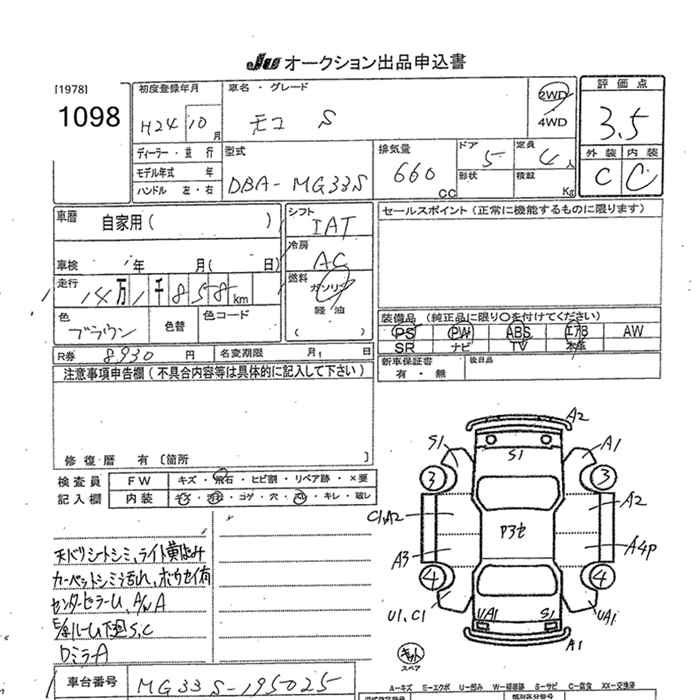 JU オークション出品申込書
[1978]
1098
初度登録年月
H24 10月
車名・グレード
モコ S
2WD
4WD
評価点
3.5
外装 内装
C C
ディーラー・並行
モデル年式 年
ハンドル 左・右
型式
DBA-MG33S
排気量
660cc
ドア
5
形状
定員
4人
積載 Kg
車暦
自家用( )
車検 年 月( 日)
走行
14万1千858km
色
ブラウン
色替
色コード
シフト
IAT
冷房
AC
燃料
ガソリン
軽油
( )
セールスポイント(正常に機能するものに限ります)
装備品 (純正品に限り○を付けてください)
PS PW ABS エアB AW
SR ナビ TV 本革
新車保証書
有・無
後日品
R券 8930円 名変期限 月 日
注意事項申告欄(不具合内容等は具体的に記入して下さい)
修復暦 有〔箇所 〕
検査員
記入欄
FW キズ・飛石・ヒビ割・リペア跡・×要
内装 キズ・コゲ・穴・キレ・破レ
天バリシートシミ、ライト黄ばみ
カーペットシミ汚れ、
A/W A
S,C
ロミラーA
A2
S1
A1
S1
3
3
C1,A2
A2
P3セ
A3
A4P
4
4
U1,C1
UA1
S1
UA1
A1
キット
スペア
車台番号
MG33S-195025
A-キズ E-エクボ U-凹み W-補修跡 S-サビ C-腐食 XX-交換済